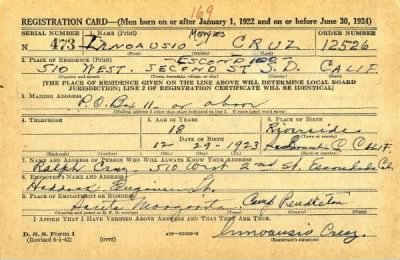 169
REGISTRATION CARD—(Men born on or after January 1, 1922 and on or before June 30, 1924)
SERIAL NUMBER 1. NAME (Print) ORDER NUMBER
N 473 Moreles CRUZ 12526
2. PLACE OF RESIDENCE (Print) ESCONDIDO
510 WEST SECOND ST S.D. CALIF.
[THE PLACE OF RESIDENCE GIVEN ON THE LINE ABOVE WILL DETERMINE LOCAL BOARD
JURISDICTION; LINE 2 OF REGISTRATION CERTIFICATE WILL BE IDENTICAL]
3. MAILING ADDRESS
P.O. Box 11. or above
4. TELEPHONE 5. AGE IN YEARS 6. PLACE OF BIRTH
18 Riverside
DATE OF BIRTH
12 29 - 1923 Calif
7. NAME AND ADDRESS OF PERSON WHO WILL ALWAYS KNOW YOUR ADDRESS
Ralph Cruz, 510 West 2nd St. Escondido Cal.
8. EMPLOYER'S NAME AND ADDRESS
Haddock Engineers
9. PLACE OF EMPLOYMENT OR BUSINESS
Santa Margarita Camp Pendleton
I AFFIRM THAT I HAVE VERIFIED ABOVE ANSWERS AND THAT THEY ARE TRUE.
D. S. S. Form 1
(Revised 6-1-42) (over) Cruz
(Registrant's signature)